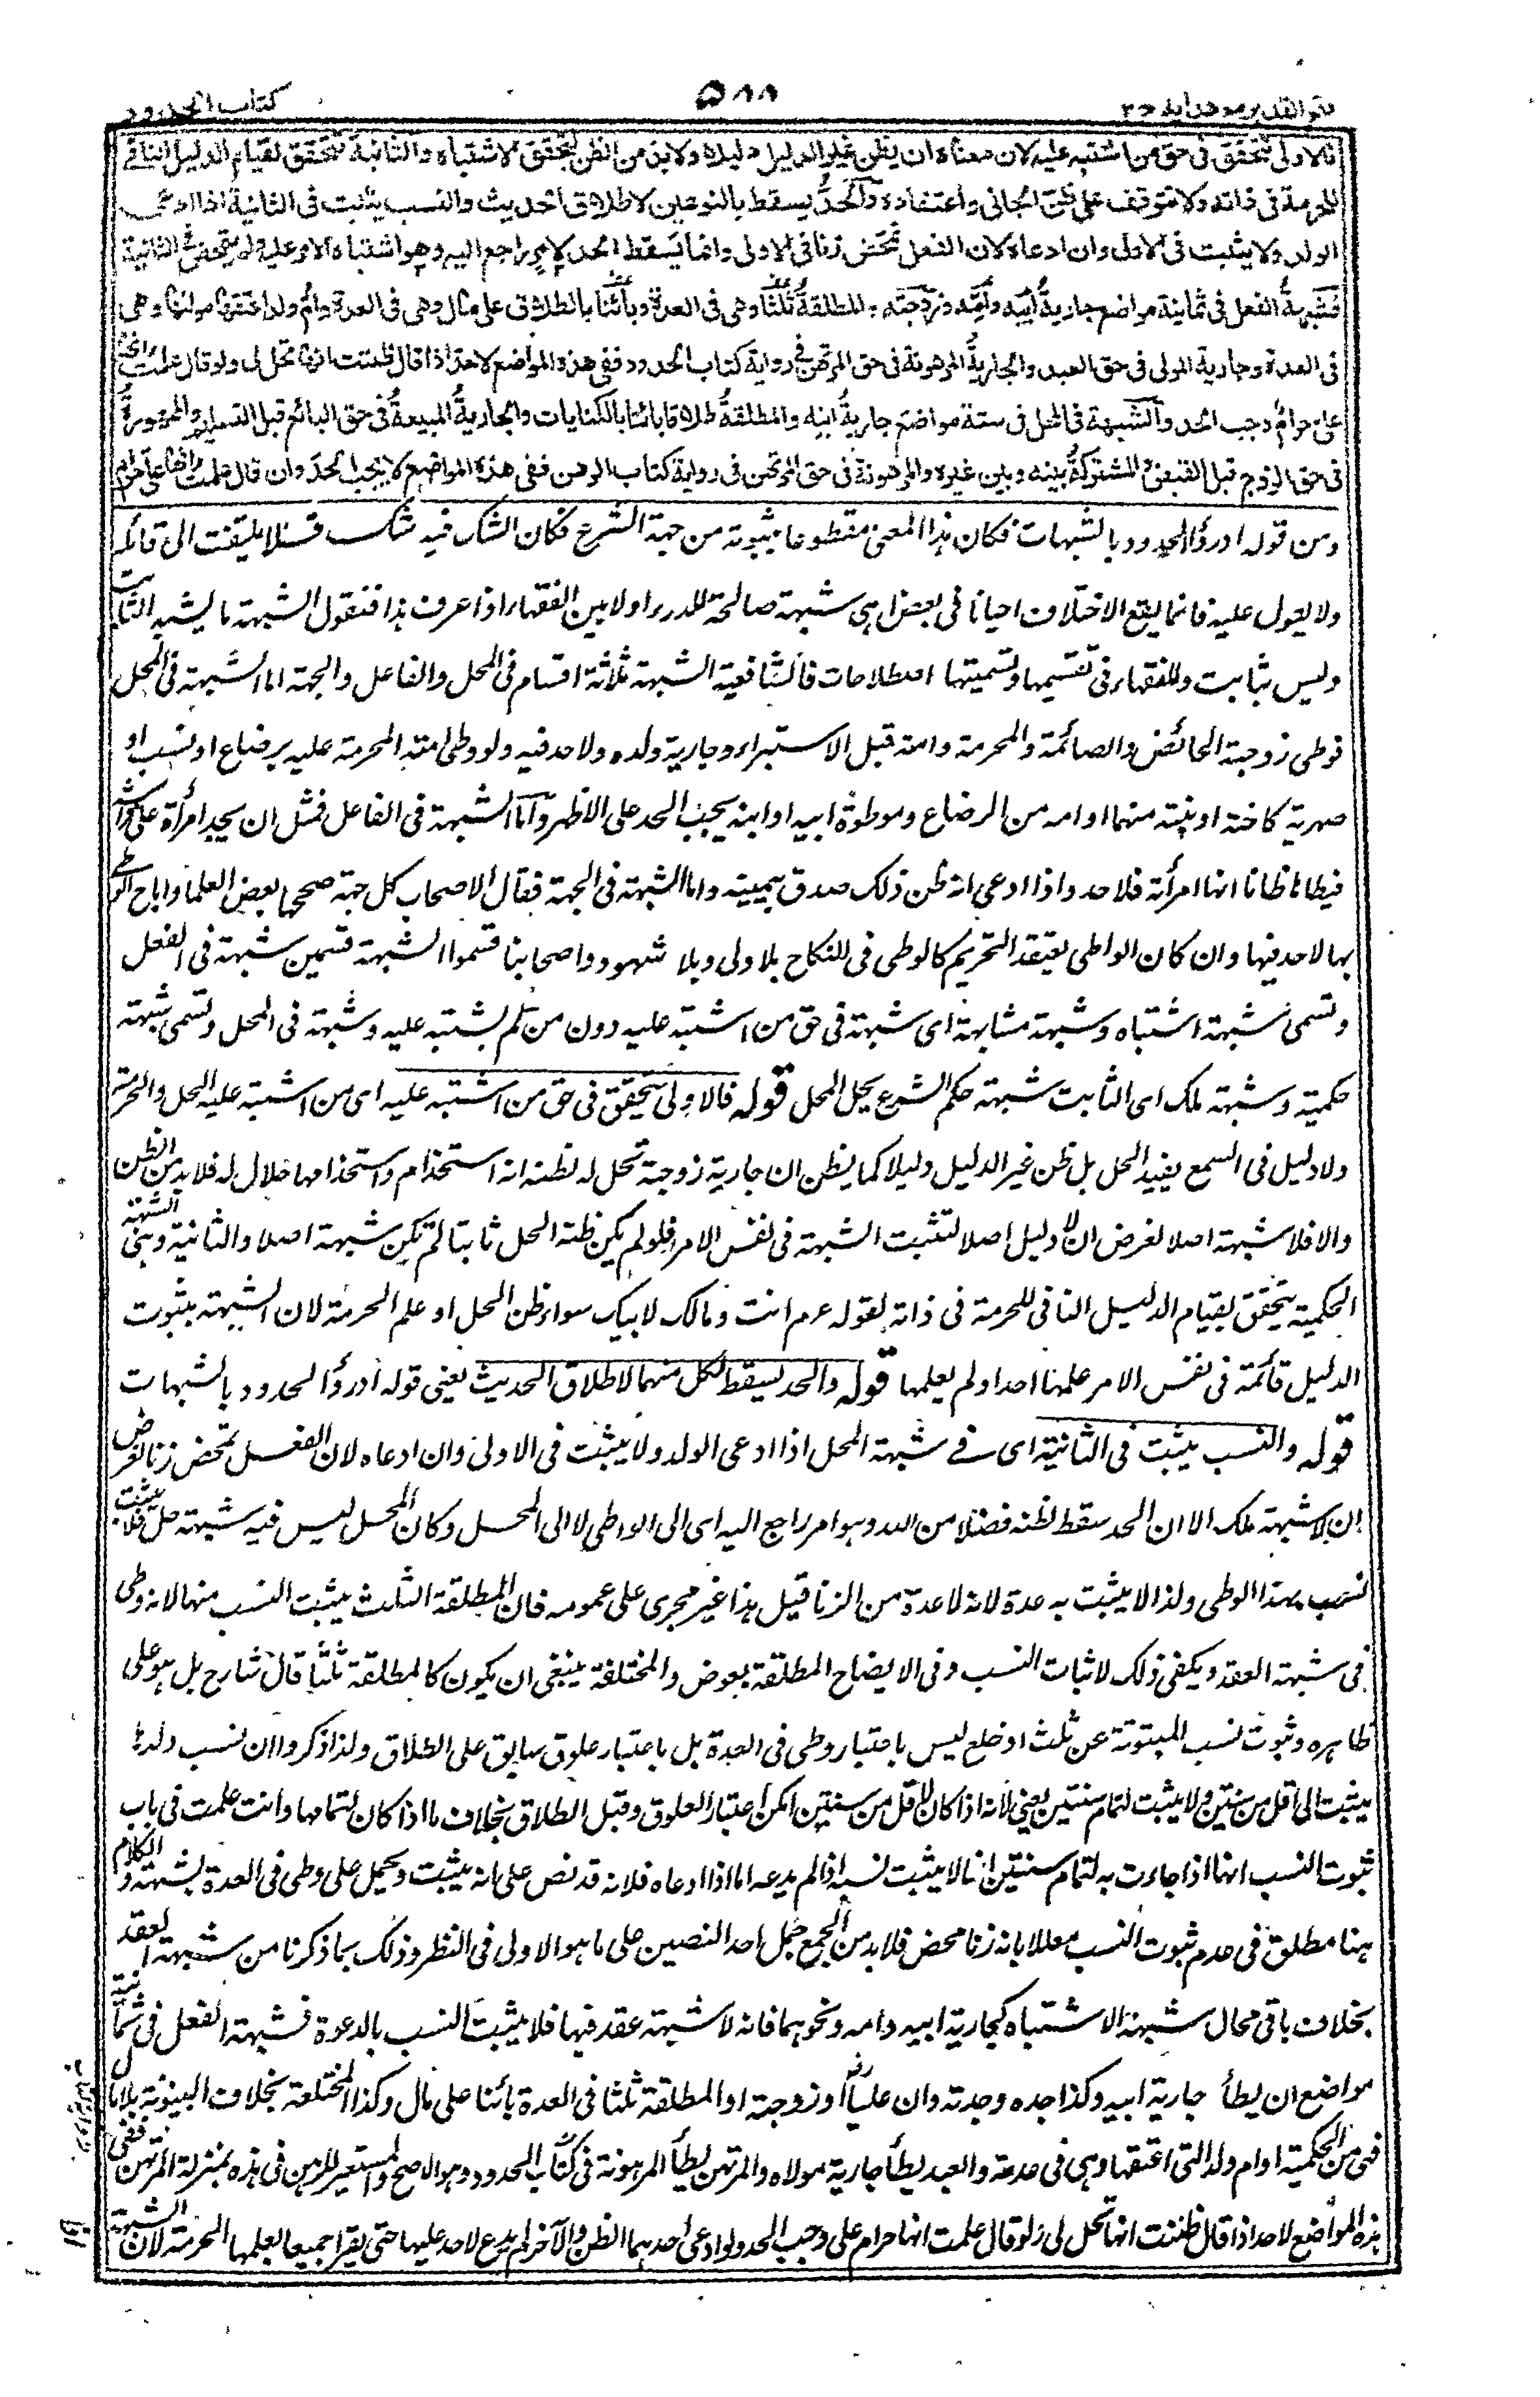 فتح القدير مع هدايه ج٢
٥٨٨
كتاب الحدود
فالاولى تتحقق فى حق من اشتبه عليه لان معناه ان يظن غير الدليل دليلا ولابد من الظن ليتحقق الاشتباه والثانية تتحقق لقيام الدليل النافى
للحرمة فى ذاته ولا تتوقف على ظن الجانى واعتقاده والحد يسقط بالنوعين لاطلاق الحديث والنسب يثبت فى الثانية اذا ادعى
الولد ولا يثبت فى الاولى وان ادعاه لان الفعل تمحض زنا فى الاولى وانما يسقط الحد لامر راجع اليه وهو اشتباه الامر عليه ولم يتمحض فى الثانية
فشبهة الفعل فى ثمانية مواضع جارية ابيه وامه وزوجته والمطلقة ثلثا وهى فى العدة وبائنا بالطلاق على مال وهى فى العدة وام ولد اعتقها مولاها وهى
فى العدة وجارية المولى فى حق العبد والجارية المرهونة فى حق المرتهن فى رواية كتاب الحدود ففى هذه المواضع لاحد اذا قال ظننت انها تحل لى ولو قال علمت انها
على حرام وجب الحد والشبهة فى المحل فى ستة مواضع جارية ابنه والمطلقة طلاقا بائنا بالكنايات والجارية المبيعة فى حق البائع قبل التسليم والممهورة
فى حق الزوج قبل القبض والمشتركة بينه وبين غيره والمرهونة فى حق المرتهن فى رواية كتاب الرهن ففى هذه المواضع لا يجب الحد وان قال علمت انها على حرام
ومن قوله ادرؤا الحدود بالشبهات فكان هذا المعنى مقطوعا بثبوته من جهة الشرع فكان الشك فيه شك فلا يلتفت الى قائله
ولا يعول عليه فانما يقع الاختلاف احيانا فى بعض اهى شبهة صالحة للدرء اولا بين الفقهاء اذا عرف هذا فنقول الشبهة ما يشبه الثابت
وليس بثابت وللفقهاء فى تقسيمها وتسميتها اصطلاحات فالشافعية الشبهة ثلثة اقسام فى المحل والفاعل والجهة اما الشبهة فى المحل
فوطى زوجته الحائض والصائمة والمحرمة وامته قبل الاستبراء وجارية ولده ولاحد فيه ولو وطى امته المحرمة عليه برضاع او نسب او
صهرية كاخته او بنته منهما او امه من الرضاع وموطوءة ابيه او ابنه يجب الحد على الاظهر واما الشبهة فى الفاعل فمثل ان يجد امرأة على فراشه
فيطأها ظانا انها امرأته فلاحد واذا ادعى انه ظن ذلك صدق بيمينه واما الشبهة فى الجهة فقال الاصحاب كل جهة صححها بعض العلماء واباح الوطى
بها لاحد فيها وان كان الواطى يعتقد التحريم كالوطى فى النكاح بلا ولى وبلا شهود واصحابنا قسموا الشبهة قسمين شبهة فى الفعل
وتسمى شبهة اشتباه وشبهة مشابهة اى شبهة فى حق من اشتبه عليه دون من لم يشتبه عليه وشبهة فى المحل وتسمى شبهة
حكمية وشبهة ملك اى الثابت شبهة حكم الشرع بحل المحل قوله فالاولى تتحقق فى حق من اشتبه عليه اى من اشتبه عليه الحل والحرمة
ولا دليل فى السمع يفيد الحل بل ظن غير الدليل دليلا كما يظن ان جارية زوجته تحل له لظنه انه استخدام واستخدامها حلال له فلابد من الظن
والا فلا شبهة اصلا لفرض ان لا دليل اصلا لتثبت الشبهة فى نفس الامر فلو لم يكن ظنه الحل ثابتا لم تكن شبهة اصلا والثانية وهى الشبهة
الحكمية تتحقق بقيام الدليل النافى للحرمة فى ذاته لقوله عم انت ومالك لابيك سواء ظن الحل او علم الحرمة لان الشبهة بثبوت
الدليل قائمة فى نفس الامر علمها احد او لم يعلمها قوله والحد يسقط لكل منهما لاطلاق الحديث يعنى قوله ادرؤا الحدود بالشبهات
قوله والنسب يثبت فى الثانية اى فى شبهة المحل اذا ادعى الولد ولا يثبت فى الاولى وان ادعاه لان الفعل تمحض زنا لفرض
ان لا شبهة ملك الا ان الحد سقط لظنه فضلا من الله وهو امر راجع اليه اى الى الواطى لا الى المحل وكان المحل ليس فيه شبهة حل فلا يثبت
نسب بهذا الوطى ولذا لا يثبت به عدة لانه لا عدة من الزنا قيل هذا غير مجرى على عمومه فان المطلقة الثلث يثبت النسب منها لانه وطى
فى شبهة العقد ويكفى ذلك لاثبات النسب وفى الايضاح المطلقة بعوض والمختلفة ينبغى ان يكون كالمطلقة ثلثا قال شارح بل هو على
ظاهره وثبوت نسب المبتوتة عن ثلث او خلع ليس باعتبار وطى فى العدة بل باعتبار علوق سابق على الطلاق ولذا ذكروا ان نسب ولدها
يثبت الى اقل من سنتين ولا يثبت لتمام سنتين يعنى لانه اذا كان لاقل من سنتين امكن اعتبار العلوق وقبل الطلاق بخلاف ما اذا كان لتمامها وانت علمت فى باب
ثبوت النسب انها اذا جاءت به لتمام سنتين انما لا يثبت نسبه اذا لم يدعه اما اذا ادعاه فلانه قد نص على انه يثبت ويحمل على وطى فى العدة لشبهة والكلام
هنا مطلق فى عدم ثبوت النسب معللا بانه زنا محض فلابد من الجمع بحمل احد النصين على ما هو الاولى فى النظر وذلك بما ذكرنا من شبهة العقد
بخلاف باقى محال شبهة الاشتباه كجارية ابيه وامه ونحوهما فانه لا شبهة عقد فيها فلا يثبت النسب بالدعوة فشبهة الفعل فى ثمانية
مواضع ان يطأ جارية ابيه وكذا جده وجدته وان عليا او زوجته او المطلقة ثلثا فى العدة بائنا على مال وكذا المختلعة بخلاف البينونة بلا مال
فهى من الحكمية او ام ولد التى اعتقها وهى فى عدته والعبد يطأ جارية مولاه والمرتهن يطأ المرهونة فى كتاب الحدود وهو الاصح والمستعير للرهن فى هذه بمنزلة المرتهن ففى
هذه المواضع لاحد اذا قال ظننت انها تحل لى ولو قال علمت انها حرام على وجب الحد ولو ادعى احدهما الظن والآخر لم يدع لاحد عليهما حتى يقرا جميعا بعلمهما الحرمة لان الشبهة